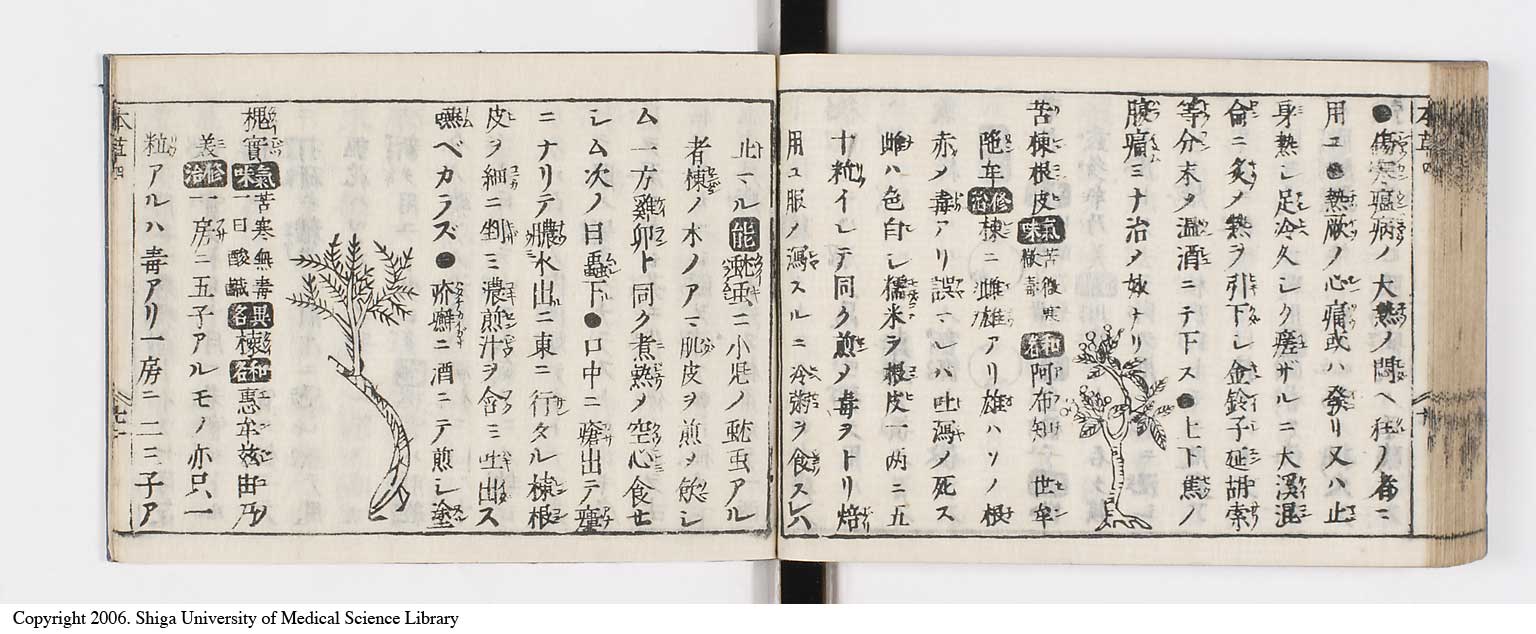 本草四
●傷寒瘟病ノ大熱ノ悶ヘ狂ノ者ニ
用ユ●熱厥ノ心痛或ハ發リ又ハ止
身熱シ足冷久シク瘥ザルニ大溪混
侖ニ炙ノ熱ヲ引下シ金鈴子延胡索
等分末ノ温酒ニテ下ス●上下焉ノ
腹痛ミナ治メ妙ナリ
苦棟根皮氣味苦微寒微毒和名阿布知一世牟
陁牟修治棟ニ雌雄アリ雄ハソノ根
赤ノ毒アリ誤マレハ吐瀉ノ死ス
雌ハ色白シ糯米ヲ根皮一两ニ五
十粒イレテ同ク煎メ毒ヲトリ焙
用ユ服ノ瀉スルニ冷粥ヲ食スレハ
止マル能蚘虫ニ小児ノ蚘虫アル
者棟ノ木ノアマ肌皮ヲ煎メ飲シ
ム一方雞卵ト同ク煮熟メ空心食セ
シム次ノ日蟲下●口中ニ瘡出テ
ニナリテ膿水出ニ東ニ行タル棟根
皮ヲ細ニ剉ミ濃煎汁ヲ含ミ吐出ス
嚥ベカラズ●疥癬ニ酒ニテ煎シ塗
槐實氣味苦寒無毒一曰酸鹹異名棟和名惠牟茲由乃
美修治一房ニ五子アルモノ亦只一
粒アルハ毒アリ一房ニ二三子ア
本草四